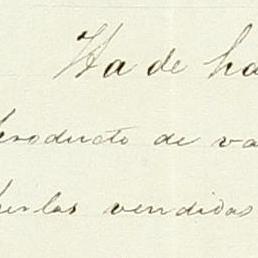 Ha de ha
producto de va
perlas vendidas